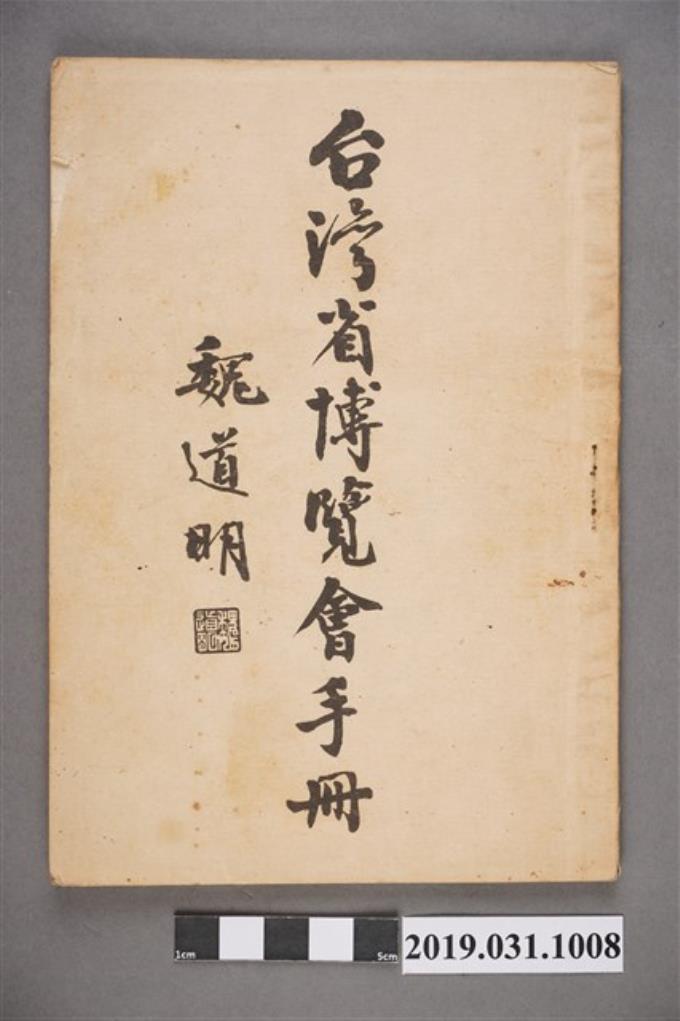 台灣省博覽會手冊
魏道明
魏道明
1cm
5cm
2019.031.1008